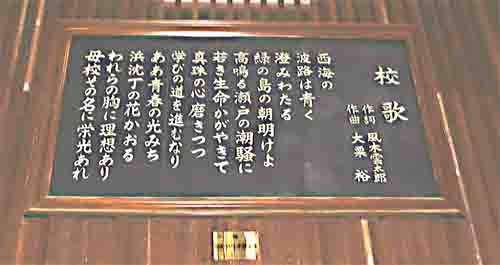 校歌
作詞 風木雲太郎
作曲 大栗裕
西海の
波路は青く
澄みわたる
緑の島の朝明けよ
高鳴る瀬戸の潮騒に
若き生命かがやきて
真珠の心磨きつつ
学びの道を進むなり
ああ青春の光みち
浜沈丁の花かおる
われらの胸に理想あり
母校その名に栄光あれ